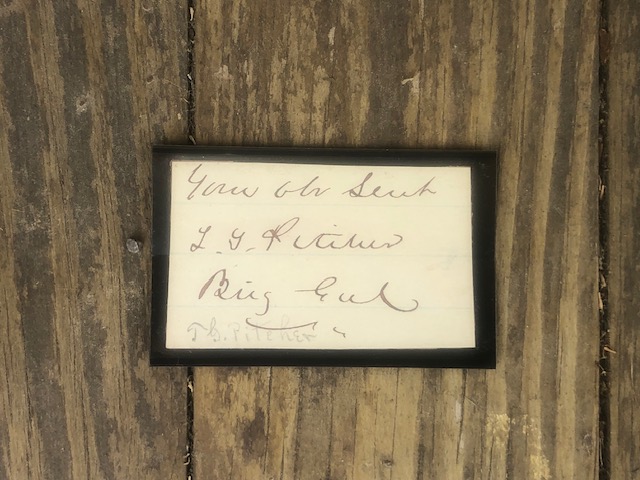 Your obt Servt
T. G. Pitcher
Brig Genl
T.G. Pitcher